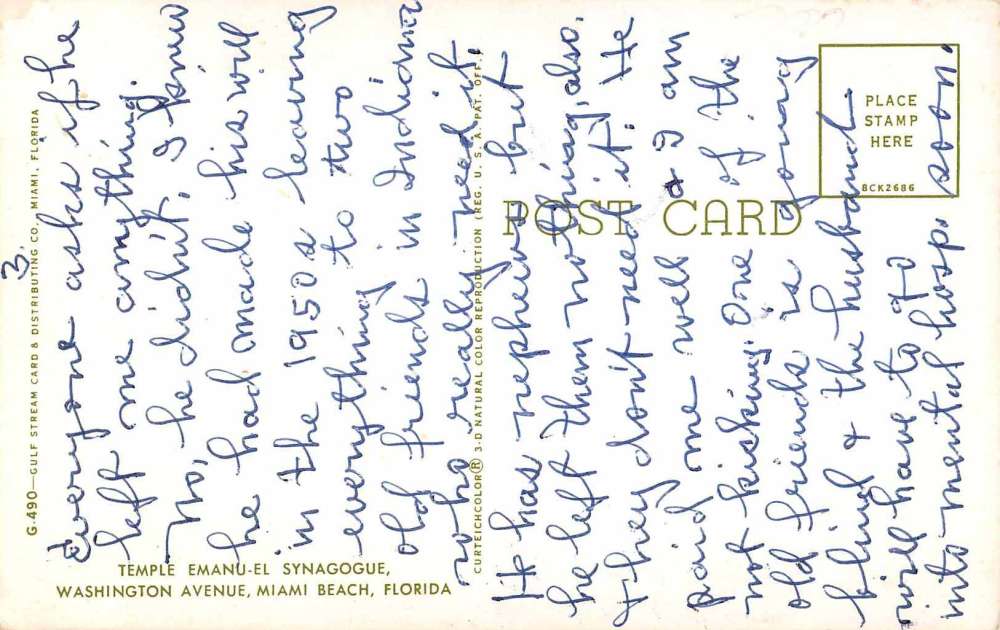 3.
Everyone asks if he
left me anything.
No, he didn't, I knew
he had made his will
in the 1950s leaving
everything to two
old friends in Indiana
who really need it.
He has nephews but
he left them nothing, also.
They don't need it. He
paid me well & I am
not kicking. One of the
old friends is going
blind & the husband
will have to go
into mental hosp. soon.
G-490—GULF STREAM CARD & DISTRIBUTING CO., MIAMI, FLORIDA
TEMPLE EMANU-EL SYNAGOGUE,
WASHINGTON AVENUE, MIAMI BEACH, FLORIDA
CURTEICHCOLOR® 3-D NATURAL COLOR REPRODUCTION (REG. U. S. A. PAT. OFF.)
POST CARD
PLACE
STAMP
HERE
8CK2686